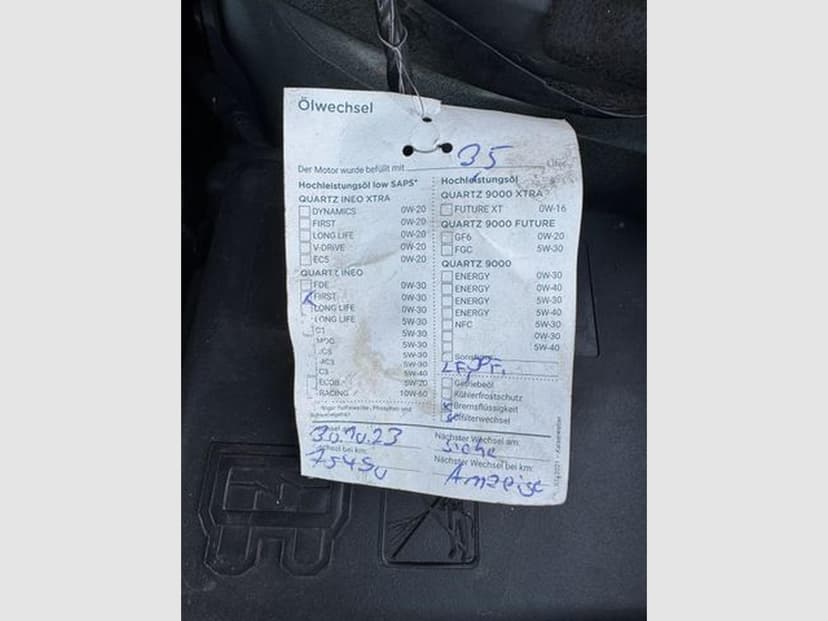 Ölwechsel
Der Motor wurde befüllt mit 3,5 Liter
Hochleistungsöl low SAPS*
QUARTZ INEO XTRA
DYNAMICS 0W-20
FIRST 0W-20
LONG LIFE 0W-20
V-DRIVE 0W-20
EC5 0W-20
QUARTZ INEO
FDE 0W-30
FIRST 0W-30
LONG LIFE 0W-30
LONG LIFE 5W-30
C1 5W-30
5W-30
5W-30
C3 5W-40
ECOB 5W-20
RACING 10W-60
Hochleistungsöl
QUARTZ 9000 XTRA
FUTURE XT 0W-16
QUARTZ 9000 FUTURE
GF6 0W-20
FGC 5W-30
QUARTZ 9000
ENERGY 0W-30
ENERGY 0W-40
ENERGY 5W-30
ENERGY 5W-40
NFC 5W-30
0W-30
5W-40
Getriebeöl
Kühlerfrostschutz
Bremsflüssigkeit
Ölfilterwechsel
30.10.23
75450
Nächster Wechsel am:
siehe
Nächster Wechsel bei km:
Anzeige